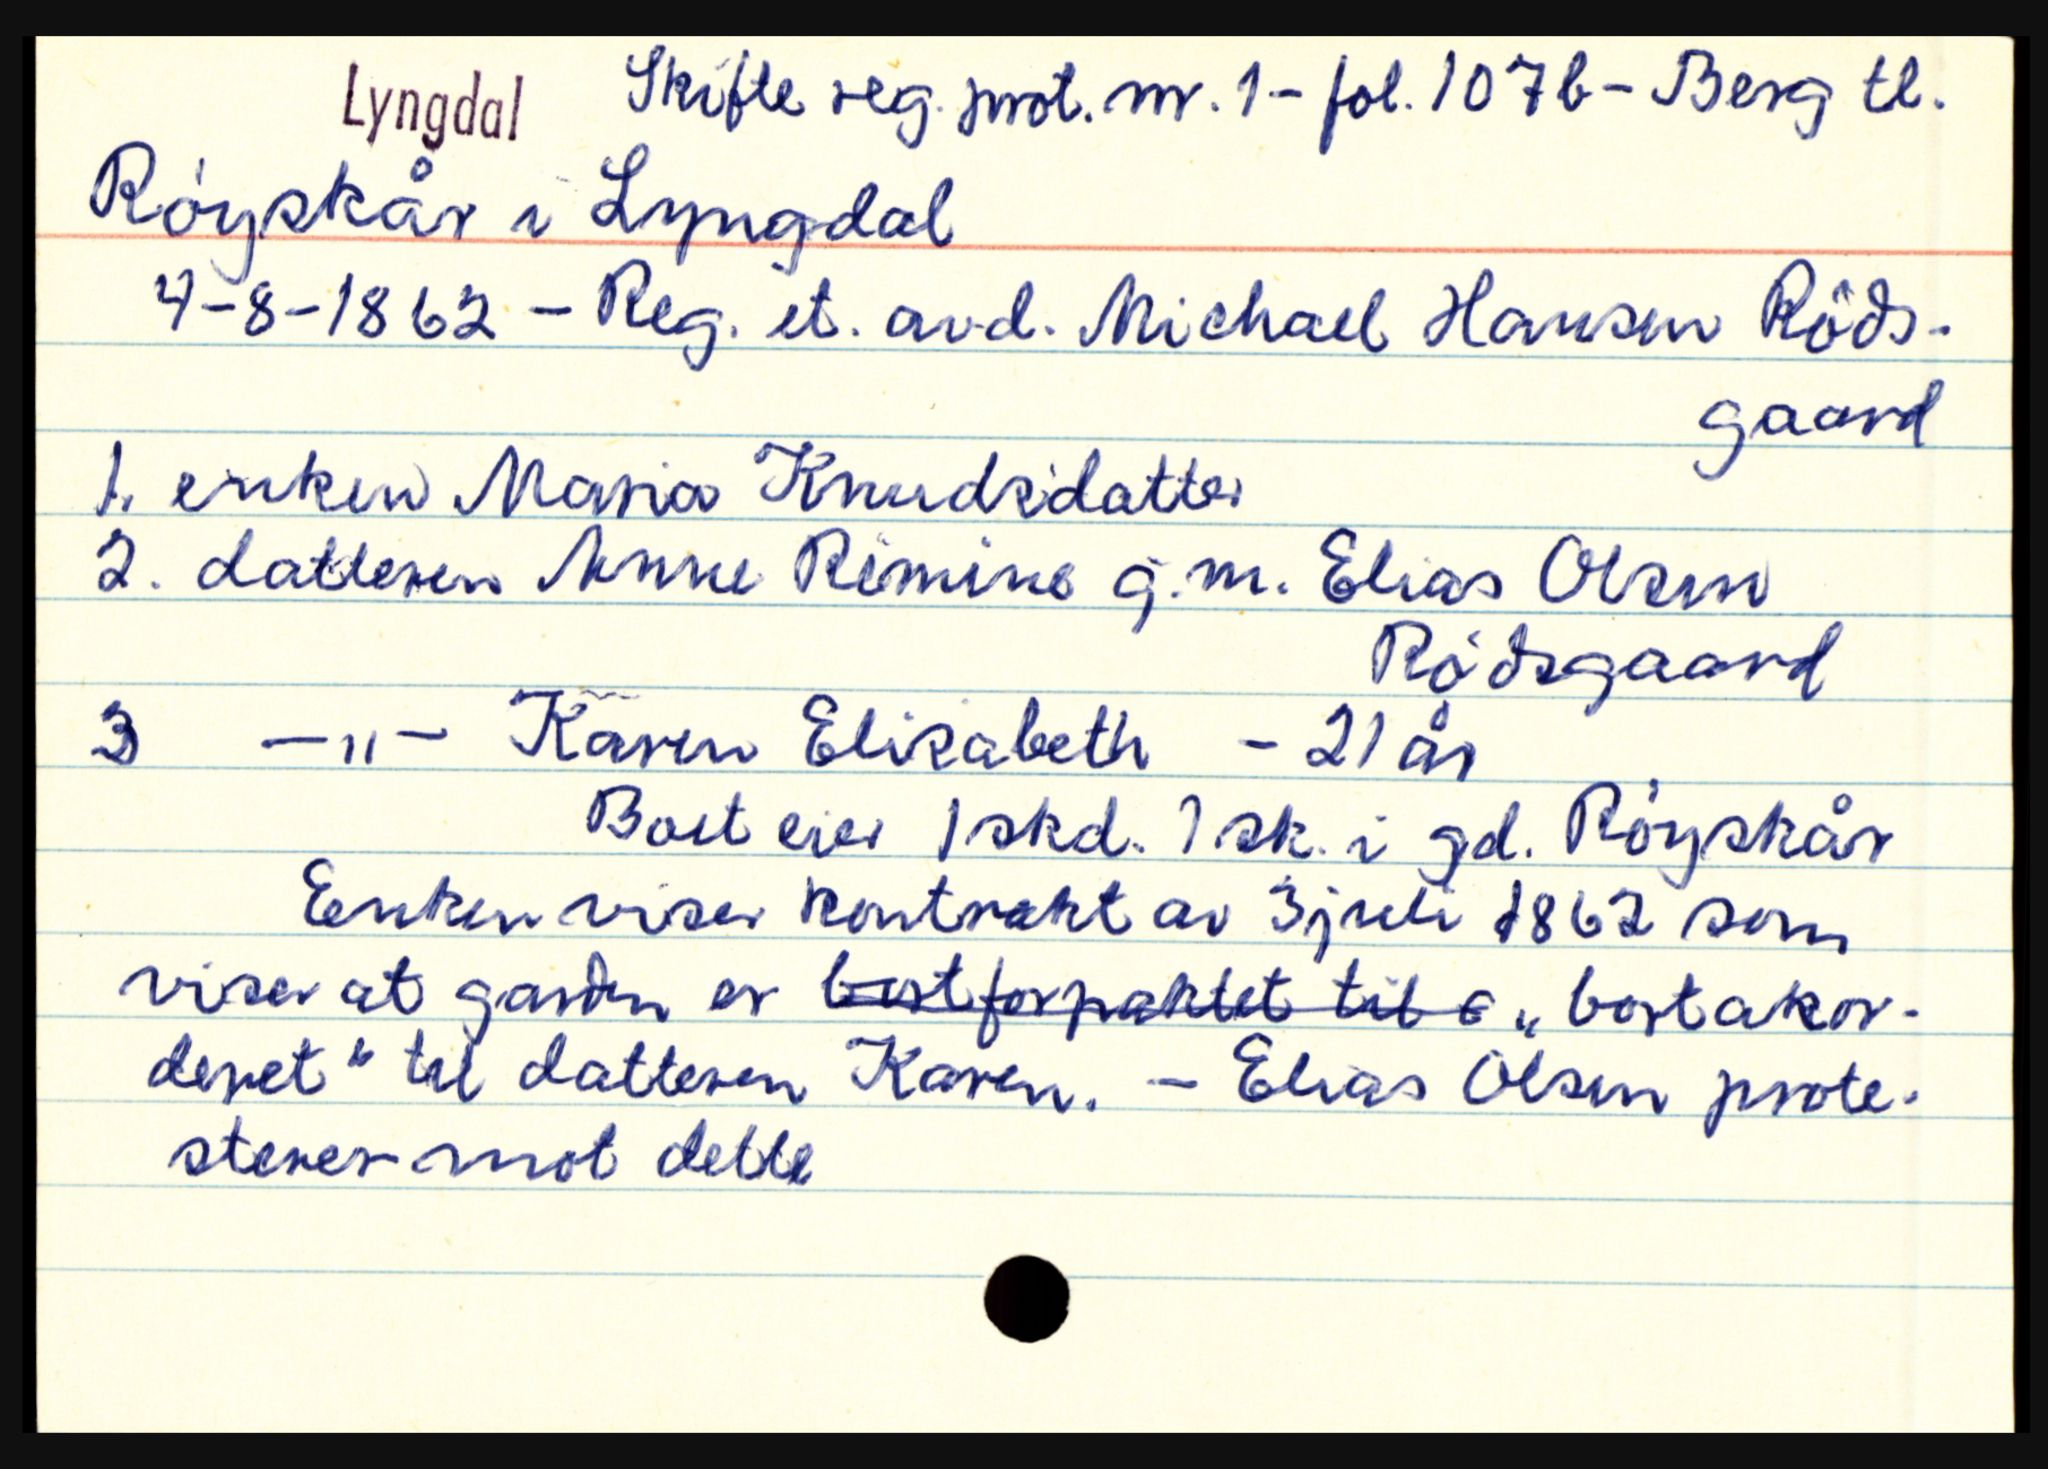 Lyngdal Skifte reg. prot. nr. 1 - fol. 107b - Berg tl.
Röyskår i Lyngdal
4-8-1862 - Reg. et. avd. Michael Hansen Röds-
gaard
1. enken Maria Knudsdatter
2. datteren Anne Remine g.m. Elias Olsen
Rödsgaard
3 —„— Karen Elisabeth - 21 år
Boet eier 1 skd. 1 sk. i gd. Röyskår
Enken viser kontrakt av 3 juli 1862 som
viser at garden er bortforpaktet til „bortakor-
deret“ til datteren Karen. - Elias Olsen prote-
sterer mot dette